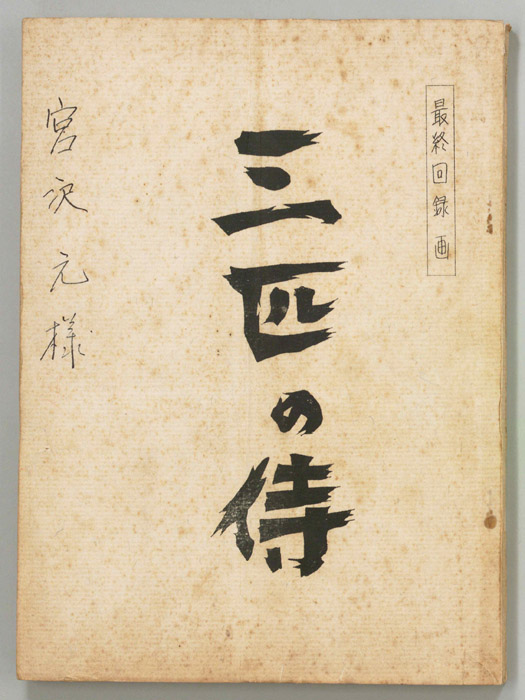 最終回録画
三匹の侍
宮沢元様